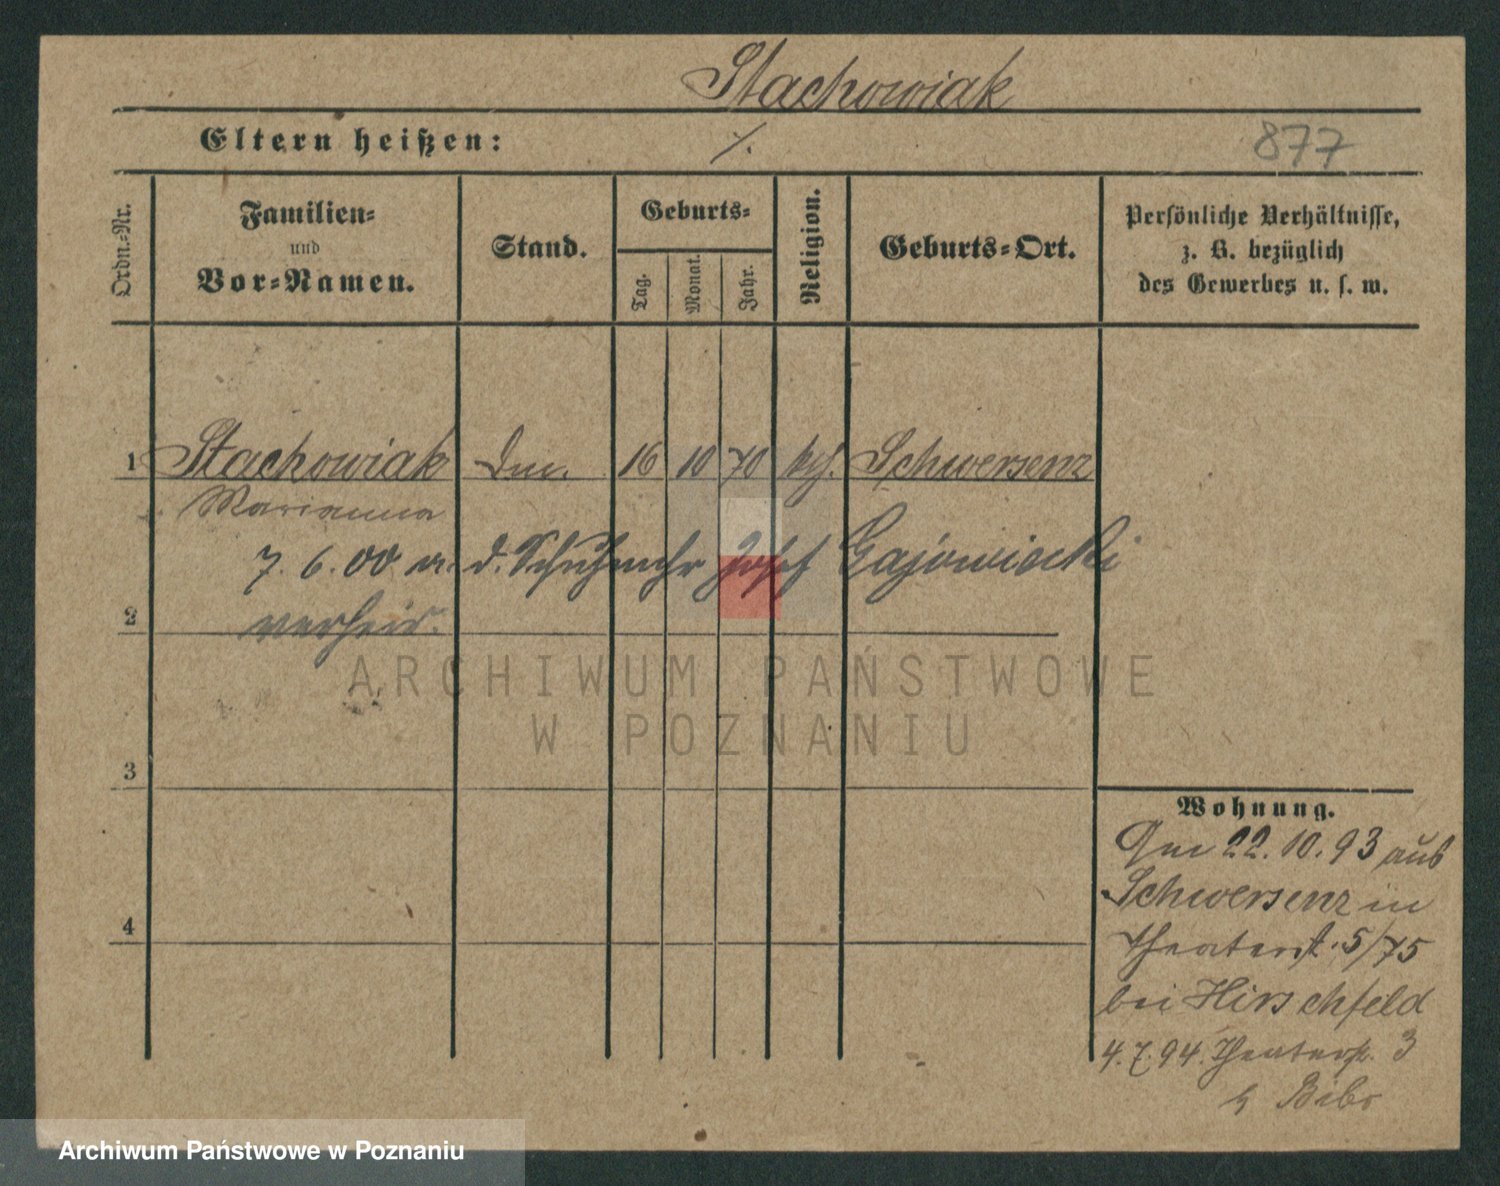 Stachowiak
Eltern heißen: ./.
877
Ordn.-Nr.
Familien-
und
Vor-Namen.
Stand.
Geburts-
Tag.
Monat.
Jahr.
Religion.
Geburts-Ort.
Persönliche Verhältnisse,
z. B. bezüglich
des Gewerbes u. s. w.
1 Stachowiak 16 10 70 kth. Schwersenz
Marianna
7. 6. 00 m. d. Schuhmchr Josef Gajowiecki
2 verheir.
3
4
Wohnung.
Am 22. 10. 93 aus
Schwersenz in
Theaterst. 5/75
bei Hirschfeld
4. 7. 94. Theaterst. 3
b Bibo
ARCHIWUM PAŃSTWOWE
W POZNANIU
Archiwum Państwowe w Poznaniu